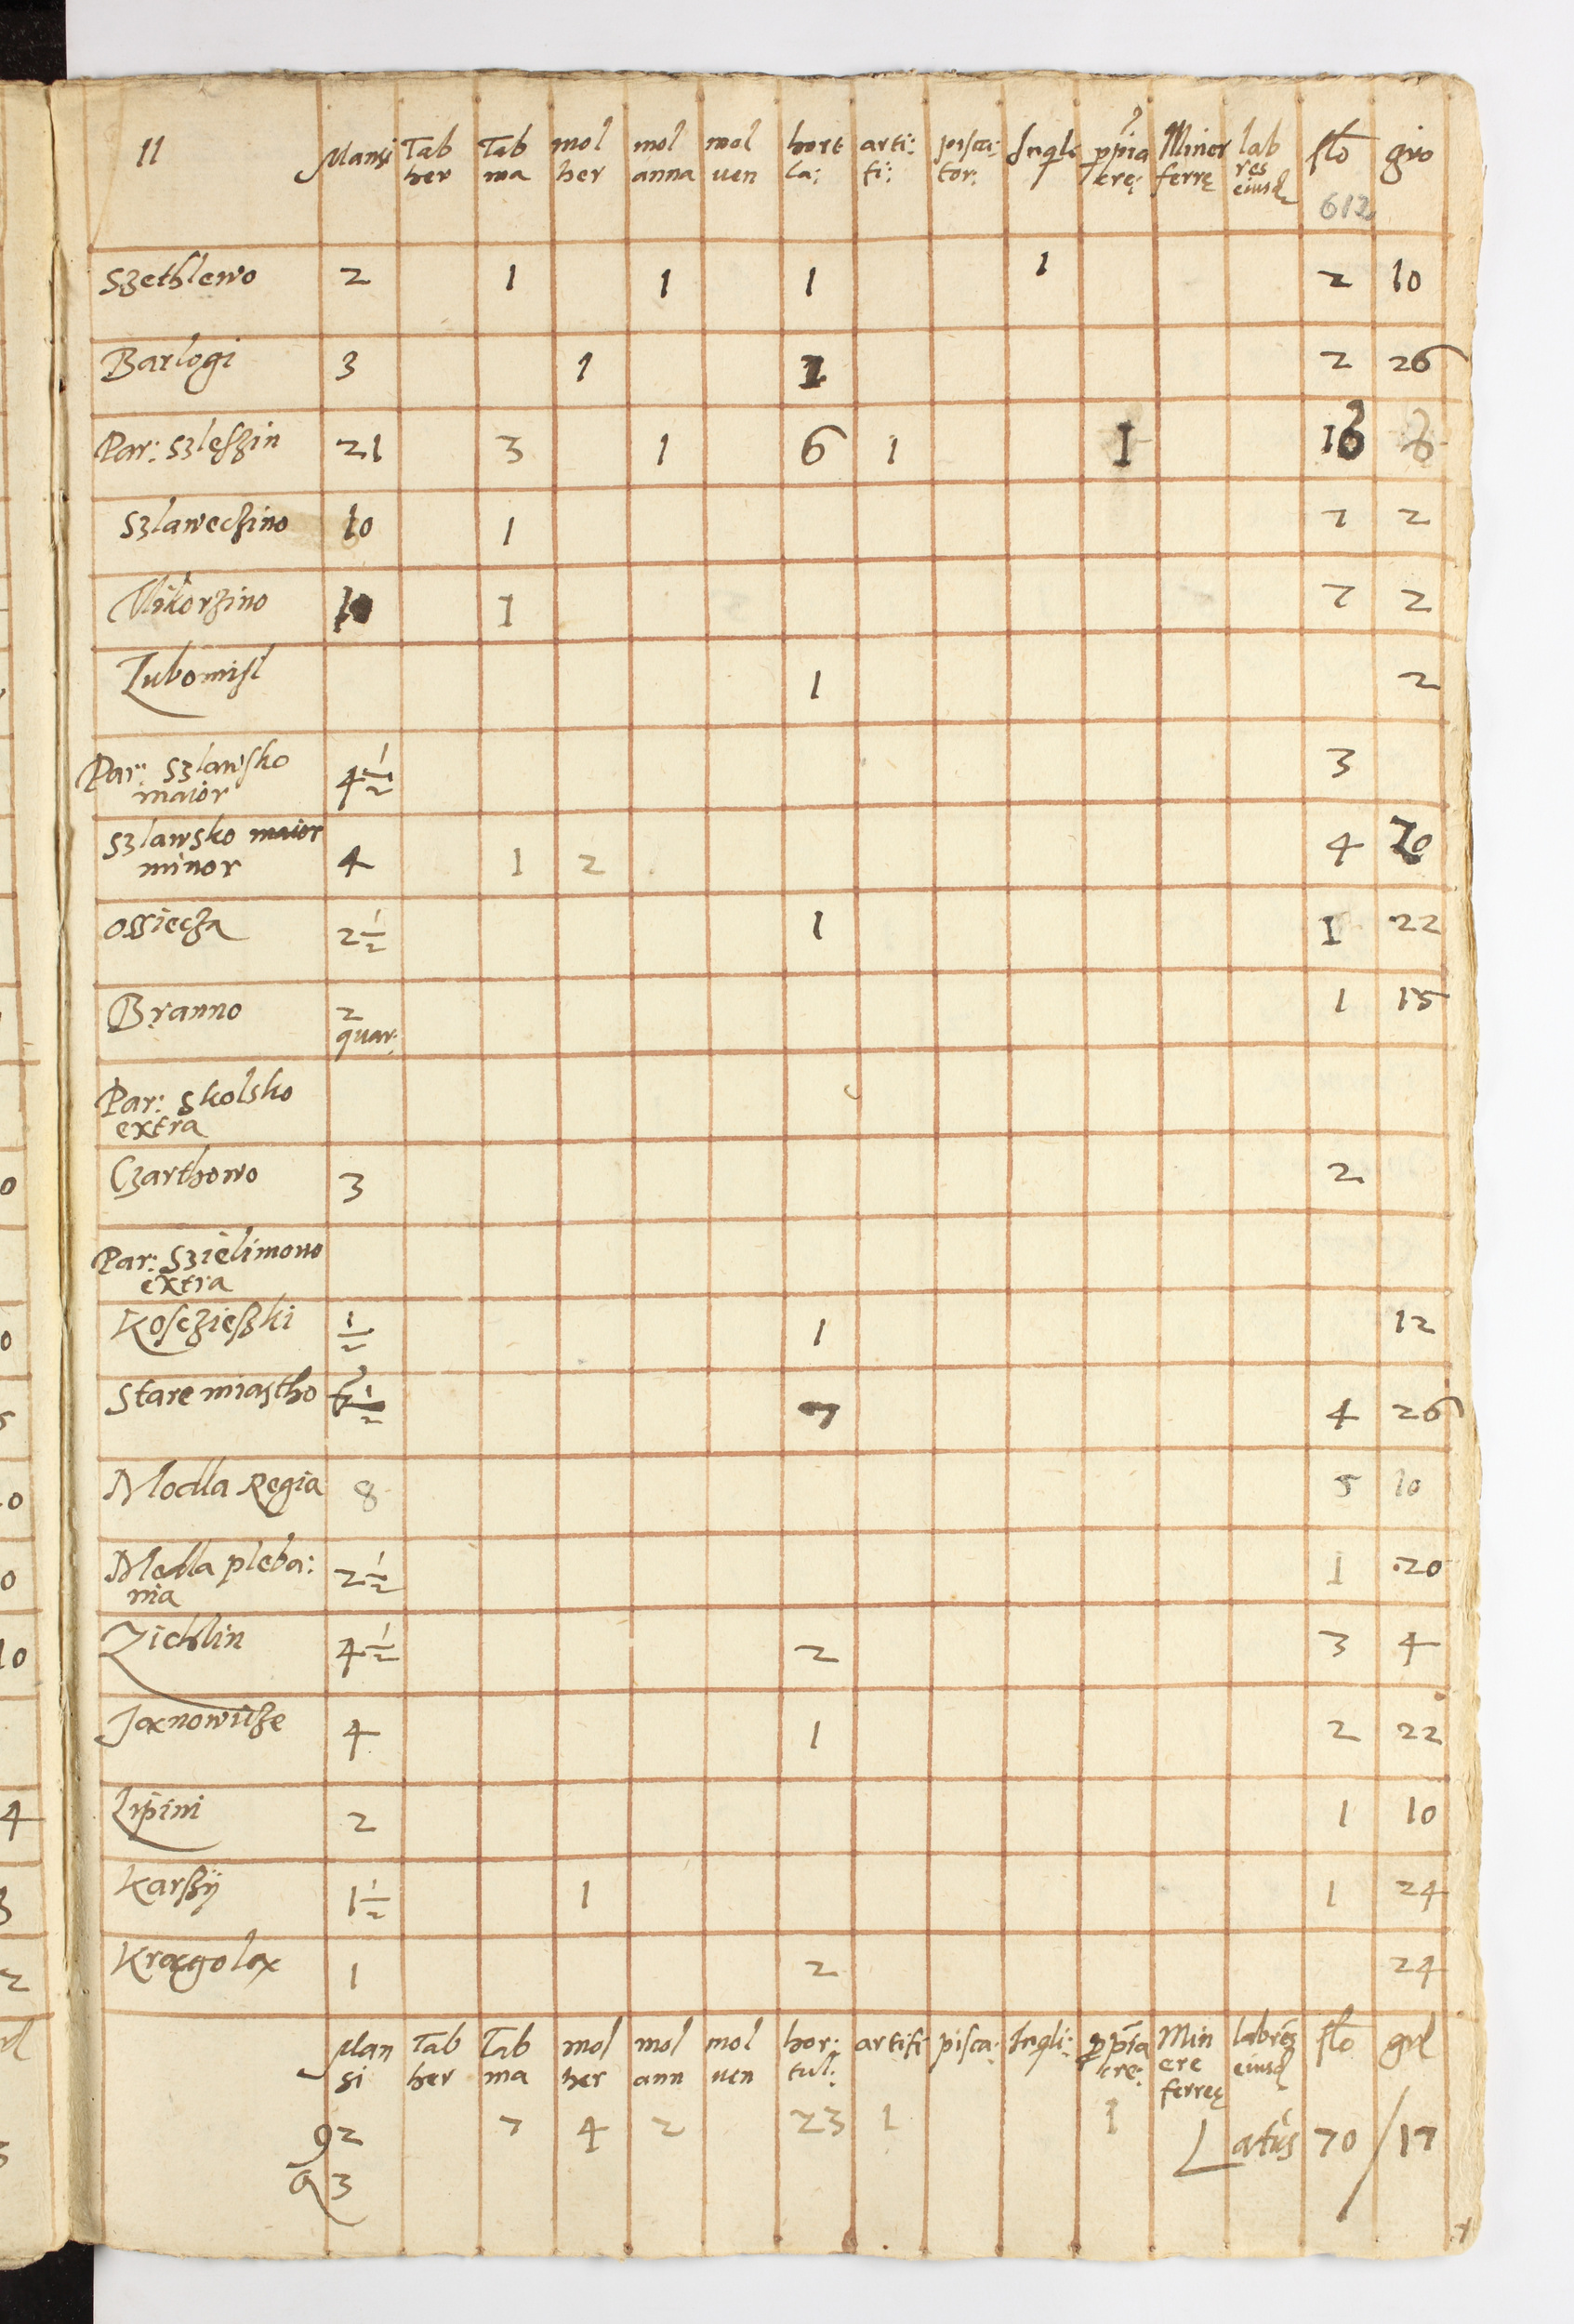 11 Mansi Tab her Tab ma mol her mol anna mol uen hort la: arti: fi: pisca: tor: Inqli ppia tre: Miner ferrę lab res eiusd flo gro
612
Szethlewo 2 1 1 1 1 2 10
Barlogi 3 1 2 26
Par: Szleszin 21 3 1 6 1 1
Szlaweczino 10 1 7 2
Mikorzino 10 1 7 2
Lubomisl 1 2
Par: Szlawsko maior 4 1/2 3
Szlawsko maior minor 4 1 2 4 20
Ossiecza 2 1/2 1 1 22
Branno 2 quar: 1 15
Par: Skolsko extra
Czarthowo 3 2
Par: Szielimowo extra
Kosczieszki 1/2 1 12
Stare miastho 1/2 7 4 26
Modla Regia 8 5 10
Modla pleba: nia 2 1/2 1 20
Zichlin 4 1/2 2 3 4
Janowicze 4 1 2 22
Lipini 2 1 10
Karszÿ 1 1/2 1 1 24
Kragola 1 2 24
Man si Tab her Tab ma mol her mol ann mol uen hor: tul: artifi pisca: Inqli: ppia tre: Min ere ferreę labres eiusd flo grl
92 7 4 2 23 1 1 Latus 70 / 17
q 3